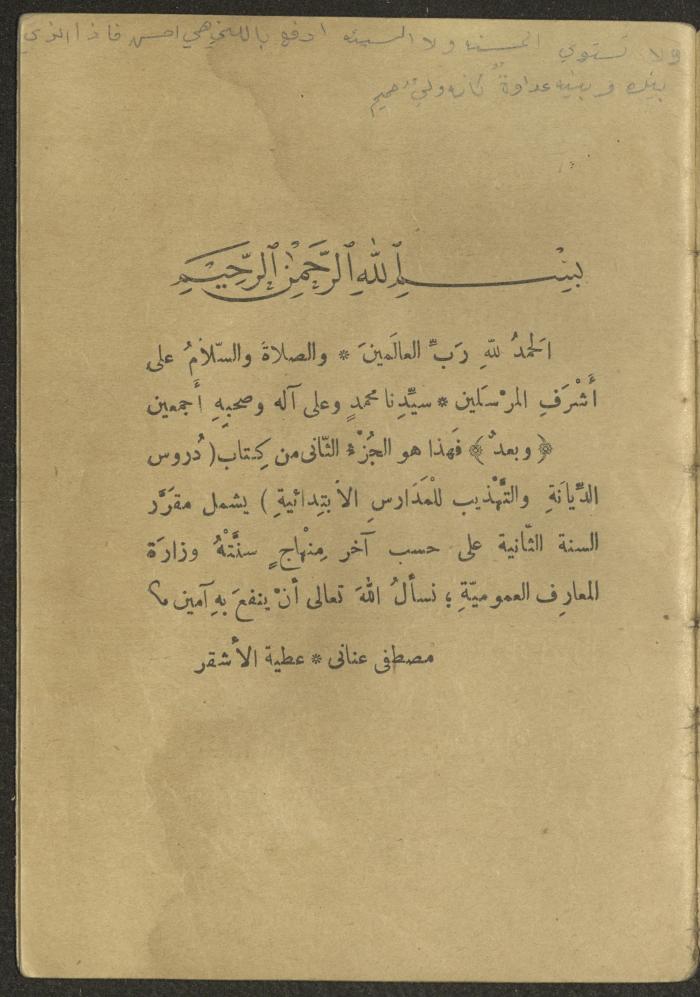 ولا تستوي الحسنه ولا السيئه ادفع باللتي هي احسن فاذا الذي
بينك وبينه عداوةٌ كانه وليٌ حميم
بِسْمِ اللهِ الرَّحْمٰنِ الرَّحِيمِ
اَلحمدُ للهِ رَبِّ العالَمينَ * والصلاةُ والسّلامُ على
أَشْرَفِ المرْسَلين * سيِّدِنا محمدٍ وعلى آله وصحبِهِ أجمعين
﴿ وبعدُ ﴾ فَهذا هو الجُزْءُ الثّانى من كِتاب ( دُروس
الدِّيَانَةِ والتَّهْذيب للْمَدَارسِ الاْبتِدائيةِ ) يشمل مقرَّر
السنة الثّانية على حسب آخر مِنْهاجٍ سنَّتْهُ وزارَة
المعارِف العموميّةِ ؛ نسألُ اللهَ تعالى أنْ ينفعَ بهِ آمين
مصطفى عنانى * عطية الأشقر